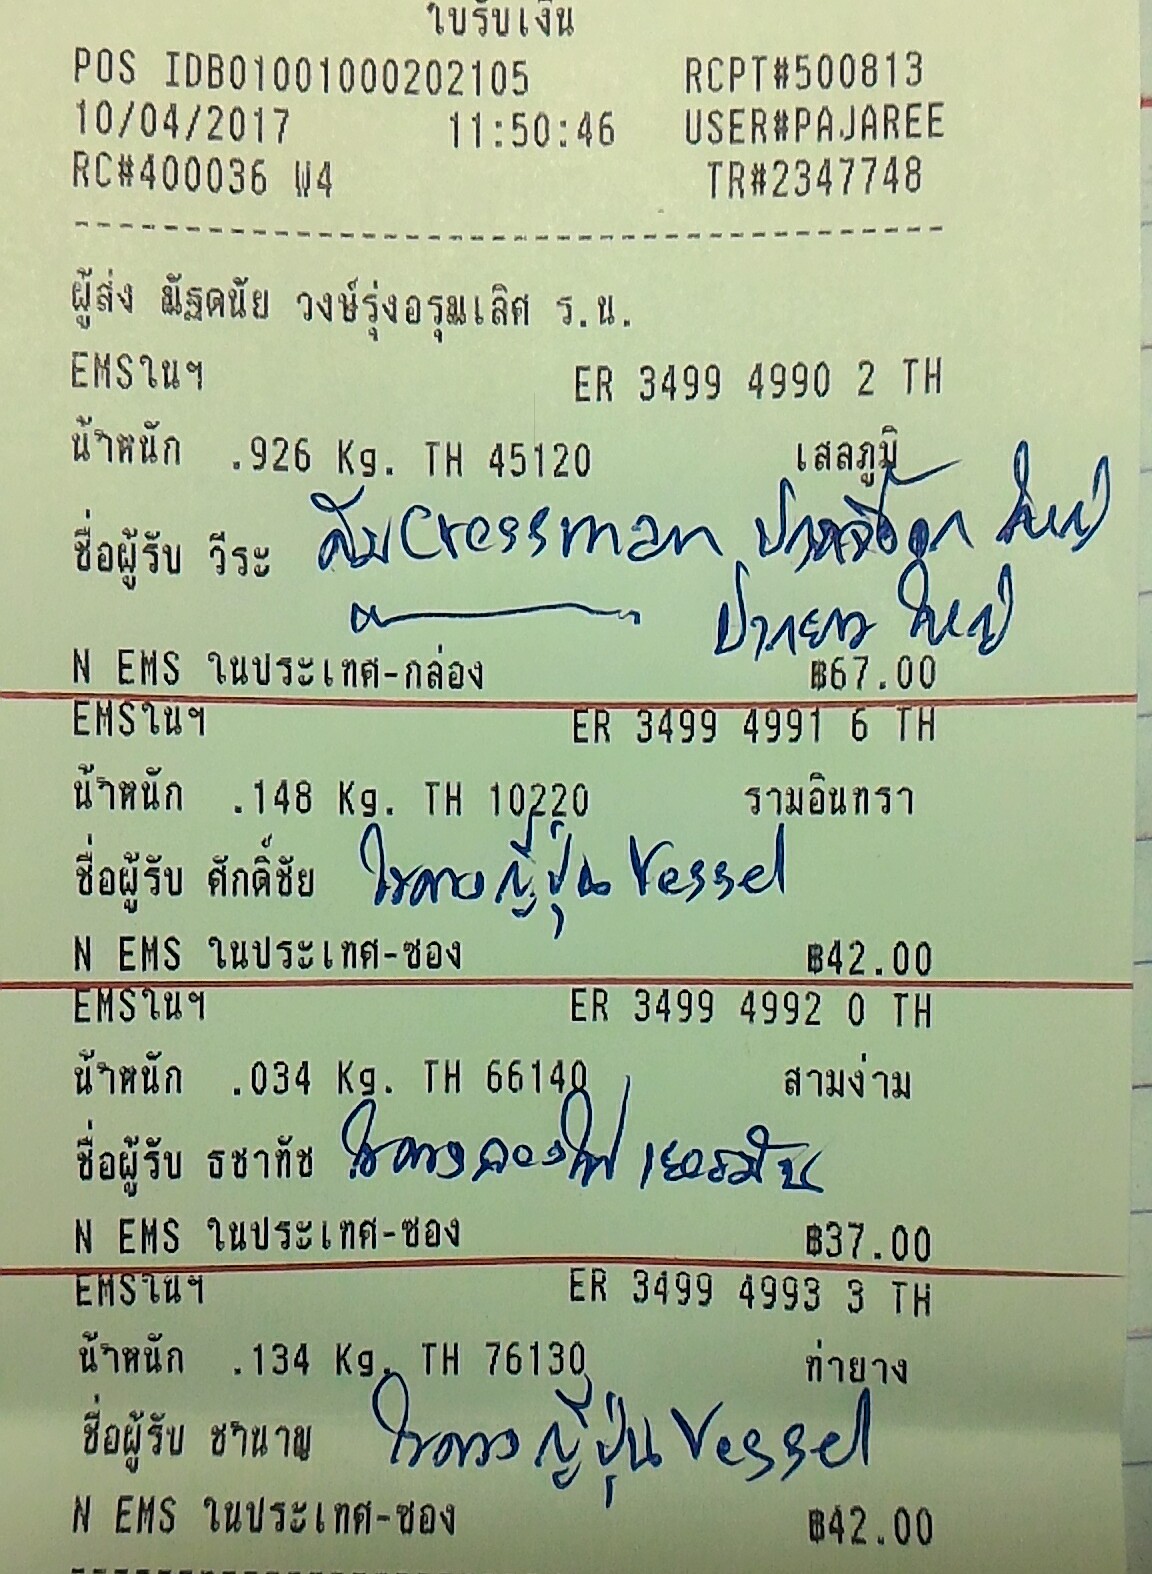 ใบรับเงิน
POS IDB01001000202105 RCPT#500813
10/04/2017 11:50:46 USER#PAJAREE
RC#400036 W4 TR#2347748
ผู้ส่ง ณัฐดนัย วงษ์รุ่งอรุณเลิศ ร.น.
EMSในฯ ER 3499 4990 2 TH
น้ำหนัก .926 Kg. TH 45120 เสลภูมิ
ชื่อผู้รับ วีระ คีม Cressman ปากจิ้งจก ใหญ่
ปากยาว ใหญ่
N EMS ในประเทศ-กล่อง ฿67.00
EMSในฯ ER 3499 4991 6 TH
น้ำหนัก .148 Kg. TH 10220 รามอินทรา
ชื่อผู้รับ ศักดิ์ชัย ไขควงญี่ปุ่น Vessel
N EMS ในประเทศ-ซอง ฿42.00
EMSในฯ ER 3499 4992 0 TH
น้ำหนัก .034 Kg. TH 66140 สามง่าม
ชื่อผู้รับ ธชาทัช ไขควงลองไฟ เยอรมัน
N EMS ในประเทศ-ซอง ฿37.00
EMSในฯ ER 3499 4993 3 TH
น้ำหนัก .134 Kg. TH 76130 ท่ายาง
ชื่อผู้รับ ชำนาญ ไขควงญี่ปุ่น Vessel
N EMS ในประเทศ-ซอง ฿42.00